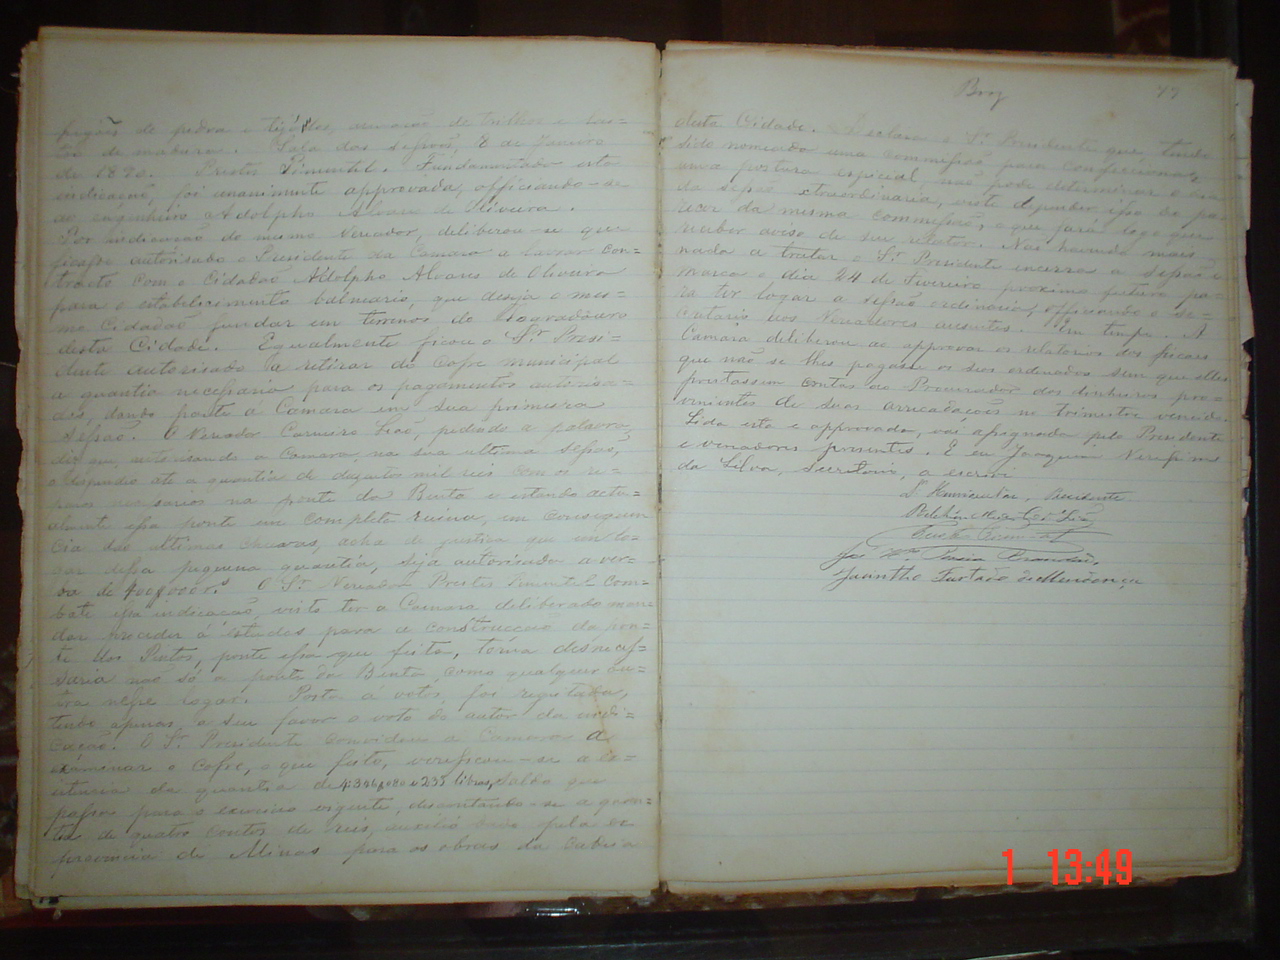 de pedra e tijolos, de trilhos e
de madeira. Sala das Sessões, 8 de Janeiro
de 1890. Prestes Pimentel. Fundamentado esta
indicação, foi unanimente approvada, officiando-se
ao engenheiro Adolpho Alvares de Oliveira.
Por indicação do mesmo Vereador, deliberou-se que
ficasse autorisado o Presidente da Camara a lavrar con=
tracto com o Cidadão Adolpho Alvares de Oliveira
para o estabelecimento balneario, que deseja o mes=
mo Cidadão fundar em terrenos do logradouro
desta Cidade. Egualmente ficou o Sr. Presi=
dente autorisado a retirar do Cofre municipal
a quantia necessaria para os pagamentos autorisa=
dos, dando parte a Camara em sua primeira
sessão. O Vereador Carneiro Leão, pedindo a palavra,
diz que, autorisando a Camara, na sua ultima sessão,
o dispendio até a quantia de duzentos mil reis com os re=
paros necessarios na ponte do Bento e estando actu=
almente essa ponte em completa ruina, em consequen
cia das ultimas chuvas, acha de justiça que em lo=
gar dessa pequena quantia, seja autorisado a ver=
ba de 400$000rs. O Sr. Vereador Prestes Pimentel com=
bate essa indicação, visto ter a Camara deliberado man=
dar proceder á estudos para a construcção da pon=
te dos Pintos, ponte essa que feita, torna desneces=
saria não só a ponte do Bento, como qualquer ou=
tra nesse logar. Posta á votos foi regeitada,
tendo apenas, a seu favor o voto do autor da indi=
cação. O Sr. Presidente convidou a Camara a
examinar o Cofre, o que feito, verificou-se a ex=
istencia da quantia de 4:346$080 e 235 libras, saldo que
passou para o exercicio vigente, descontando-se a quan=
tia de quatro contos de reis, auxilio pela ex
provincia de Minas para as obras da Cadeia
Braz 77
desta Cidade. Declara o Sr. Presidente que tendo
sido nomeado uma commissão para confeccionar
uma postura especial não pode determinar o dia
da sessão extraordinaria, visto depender isso do pa=
recer da mesma commissão, o que fará logo que
receber aviso de seu relator. Não havendo mais
nada a tratar o Sr. Presidente encerra a sessão e
marca o dia 24 de Fevereiro proximo futuro pa=
ra ter logar a sessão ordinaria, officiando o Se=
cretario aos Vereadores ausentes. Em tempo. A
Camara deliberou ao approvar os relatorios dos fiscaes
que não se lhes pagasse os seos ordenados sem que elles
prestassem contas ao Procurador dos dinheiros pro=
venientes de suas arrecadações no trimestre vencido.
Lida esta e approvada, vai assignada pelo Presidente
e vereadores presentes. E eu Joaquim Nerefim
da Silva, Secretario, a escrevi
Presidente
José Maria Brandão
Jacintho Furtado de Mendonça
1 13:49